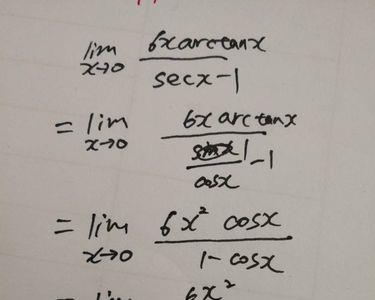 lim x→0 6x arctan x / sec x - 1
= lim x→0 6x arctan x / 1/cos x - 1
= lim x→0 6x² cos x / 1 - cos x
= lim 6x²